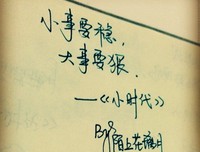 小事要稳，
大事要狠．
—《小时代》
By：陌上花涧月